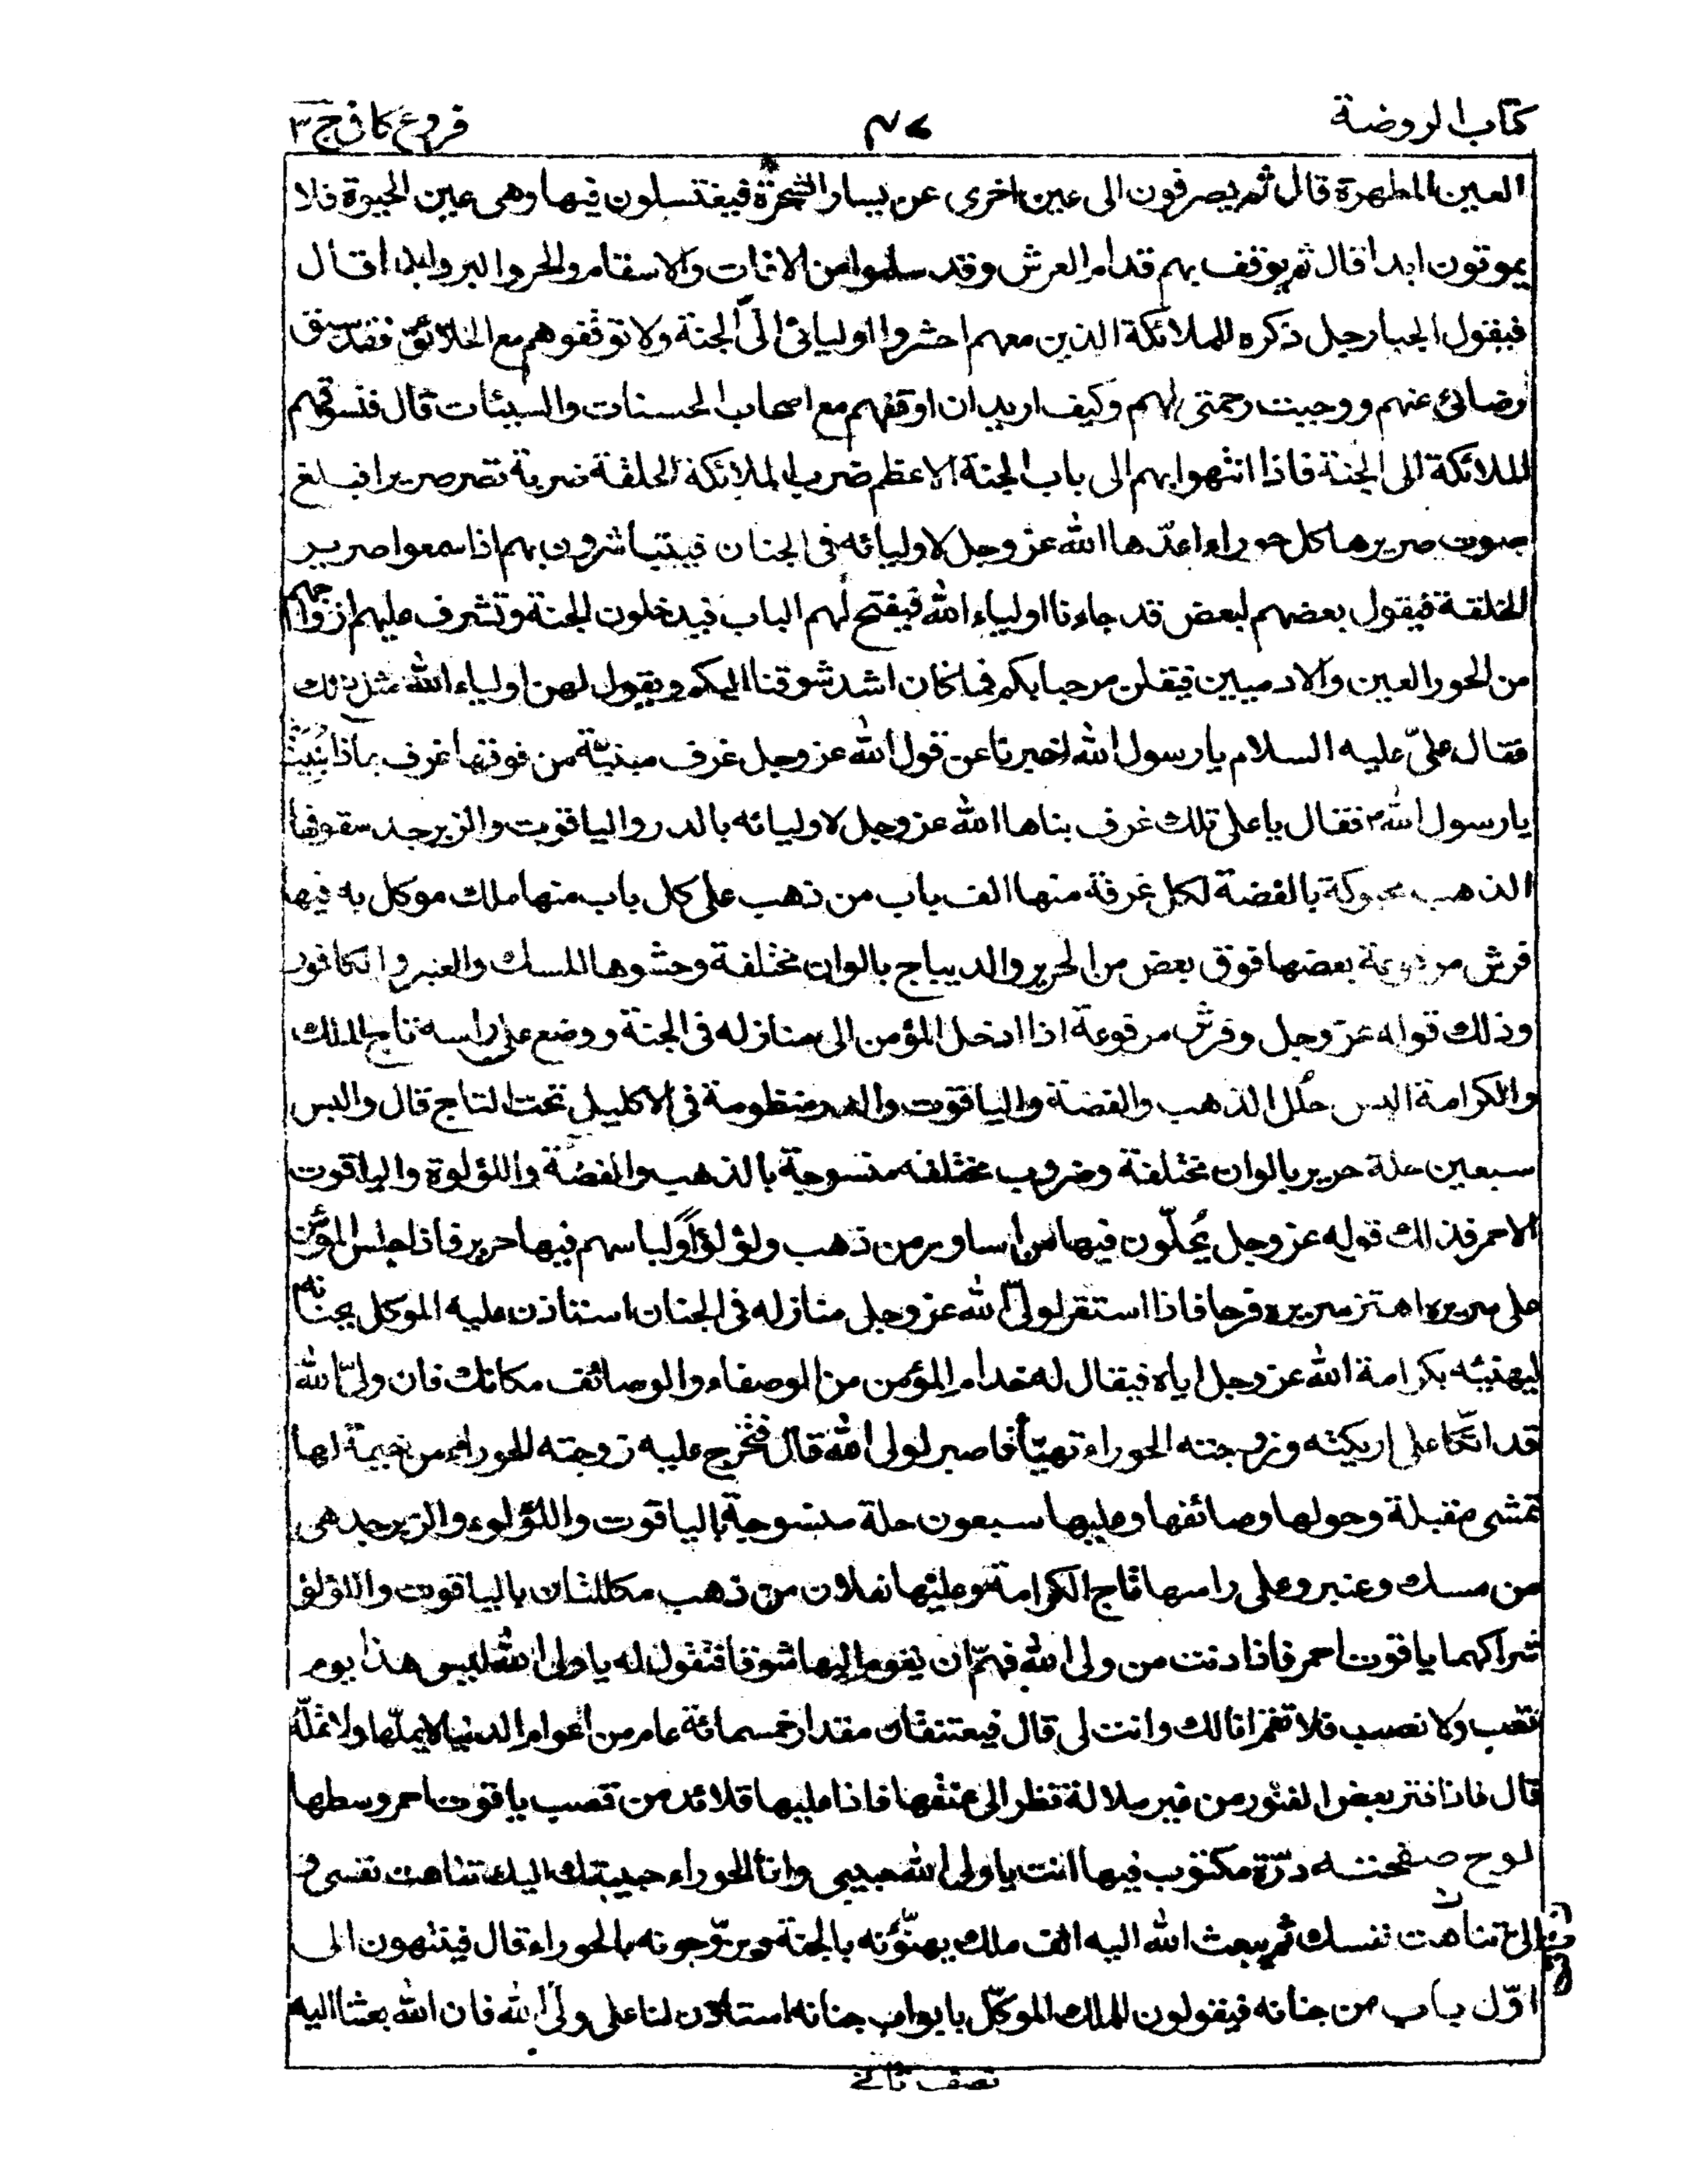 كتاب الروضة ٤٧ فروع كافى ج ٣
العين المطهرة قال ثم يصرفون الى عين اخرى عن يسار الشجرة فيغتسلون فيها وهى عين الحيوة فلا
يموتون ابدا قال ثم يوقف بهم قدام العرش وقد سلموا من الافات والاسقام والحر والبرد ابدا قال
فيقول الجبار جل ذكره للملائكة الذين معهم احشروا اوليائى الى الجنة ولا توقفوهم مع الخلائق فقد سبق
رضائى عنهم ووجبت رحمتى لهم وكيف اريد ان اوقفهم مع اصحاب الحسنات والسيئات قال فتسوقهم
الملائكة الى الجنة فاذا انتهوا بهم الى باب الجنة الاعظم ضرب الملائكة الحلقة ضربة تصر صريرا فبلغ
صوت صريرها كل حوراء اعدّها الله عز وجل لاوليائه فى الجنان فيتباشرون بهم اذا سمعوا صرير
الحلقة فيقول بعضهم لبعض قد جاءنا اولياء الله فيفتح لهم الباب فيدخلون الجنة وتشرف عليهم ازواجهم
من الحور العين والادميين فيقلن مرحبا بكم فما كان اشد شوقنا اليكم ويقول لهن اولياء الله مثل ذلك
فقال علىّ عليه السلام يا رسول الله اخبرنا عن قول الله عز وجل غرف مبنيّة من فوقها غرف بماذا بُنِيَتْ
يا رسول الله ص فقال يا على تلك غرف بناها الله عز وجل لاوليائه بالدر والياقوت والزبرجد سقوفها
الذهب محبوكة بالفضة لكل غرفة منها الف باب من ذهب على كل باب منها ملك موكل به فيها
فرش مرفوعة بعضها فوق بعض من الحرير والديباج بالوان مختلفة وحشوها المسك والعنبر والكافور
وذلك قوله عز وجل وفرش مرفوعة اذا ادخل المؤمن الى منازله فى الجنة ووضع على راسه تاج الملك
والكرامة البس حُلل الذهب والفضة والياقوت والدر منظومة فى الاكليل تحت التاج قال والبس
سبعين حلة حرير بالوان مختلفة وضروب مختلفه منسوجة بالذهب والفضّة واللؤلوة والياقوت
الاحمر فذلك قوله عز وجل يُحلّون فيها من اساور من ذهب ولؤلؤاً ولباسهم فيها حرير فاذا جلس المؤمن
على سريره اهتز سريره فرحا فاذا استقر لولىّ الله عز وجل منازله فى الجنان استاذن عليه الموكل بجنانه
ليهنيئه بكرامة الله عز وجل اياه فيقال له خدام المؤمن من الوصفاء والوصائف مكانك فان ولىّ الله
قد اتّكا على اريكته وزوجته الحوراء تهيّأ فاصبر لولى الله قال فتخرج عليه زوجته الحوراء من خيمة لها
تمشى مقبلة وحولها وصائفها وعليها سبعون حلة منسوجة بالياقوت واللؤلوء والزبرجد هى
من مسك وعنبر وعلى راسها تاج الكرامة وعليها نعلان من ذهب مكللتان بالياقوت واللؤلؤ
شراكهما ياقوت احمر فاذا دنت من ولى الله فهمّ ان يقوم اليها شوقا فتقول له يا ولى الله ليس هذا يوم
تعب ولا نصب فلا تقم انا لك وانت لى قال فيعتنقان مقدار خمسمائة عام من اعوام الدنيا لا يملّها ولا تملّه
قال فاذا فتر بعض الفتور من غير ملالة نظر الى عنقها فاذا عليها قلائد من قصب ياقوت احمر وسطها
لوح صفحته درّة مكتوب فيها انت يا ولى الله حبيبى وانا الحوراء حبيبتك اليك تناهت نفسى و
الىّ تناهت نفسك ثم يبعث الله اليه الف ملك يهنّؤنه بالجنة ويزوّجونه بالحوراء قال فينتهون الى
اوّل باب من جنانه فيقولون للملك الموكّل بابواب جنانه استاذن لنا على ولىّ الله فان الله بعثنا اليه